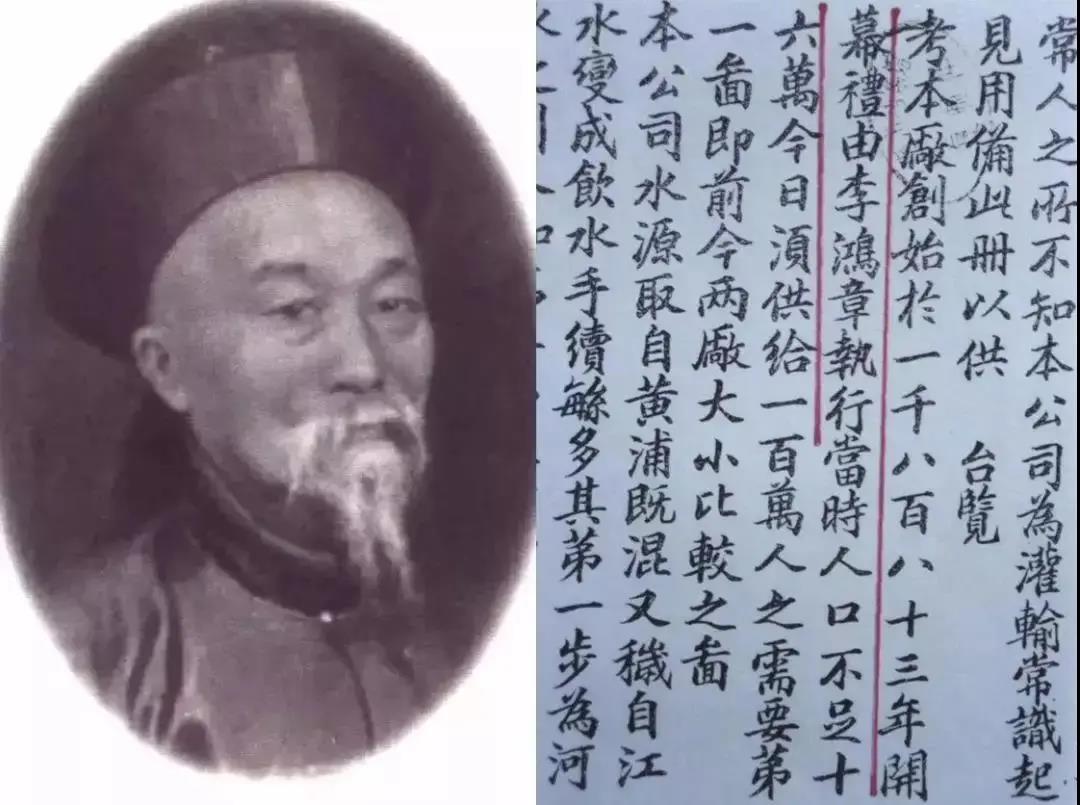 常人之所不知本公司為灌輸常識起
見用備此冊以供　台覽
考本廠創始於一千八百八十三年開
幕禮由李鴻章執行當時人口不足十
六萬今日須供給一百萬人之需要第
一畵即前今两廠大小比較之畵
本公司水源取自黄浦既混又穢自江
水變成飲水手續緐多其第一步為河
水